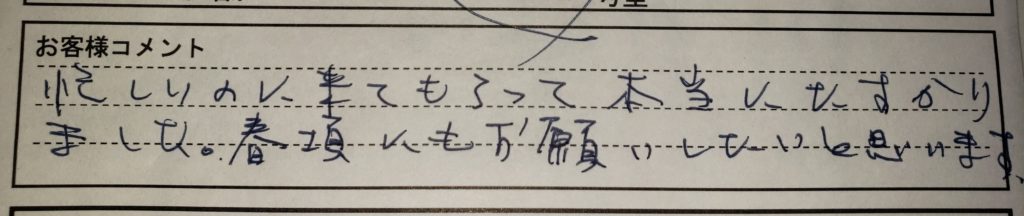 お客様コメント
忙しいのに来てもらって本当にたすかり
ました。春項にもお願いしたいと思います。